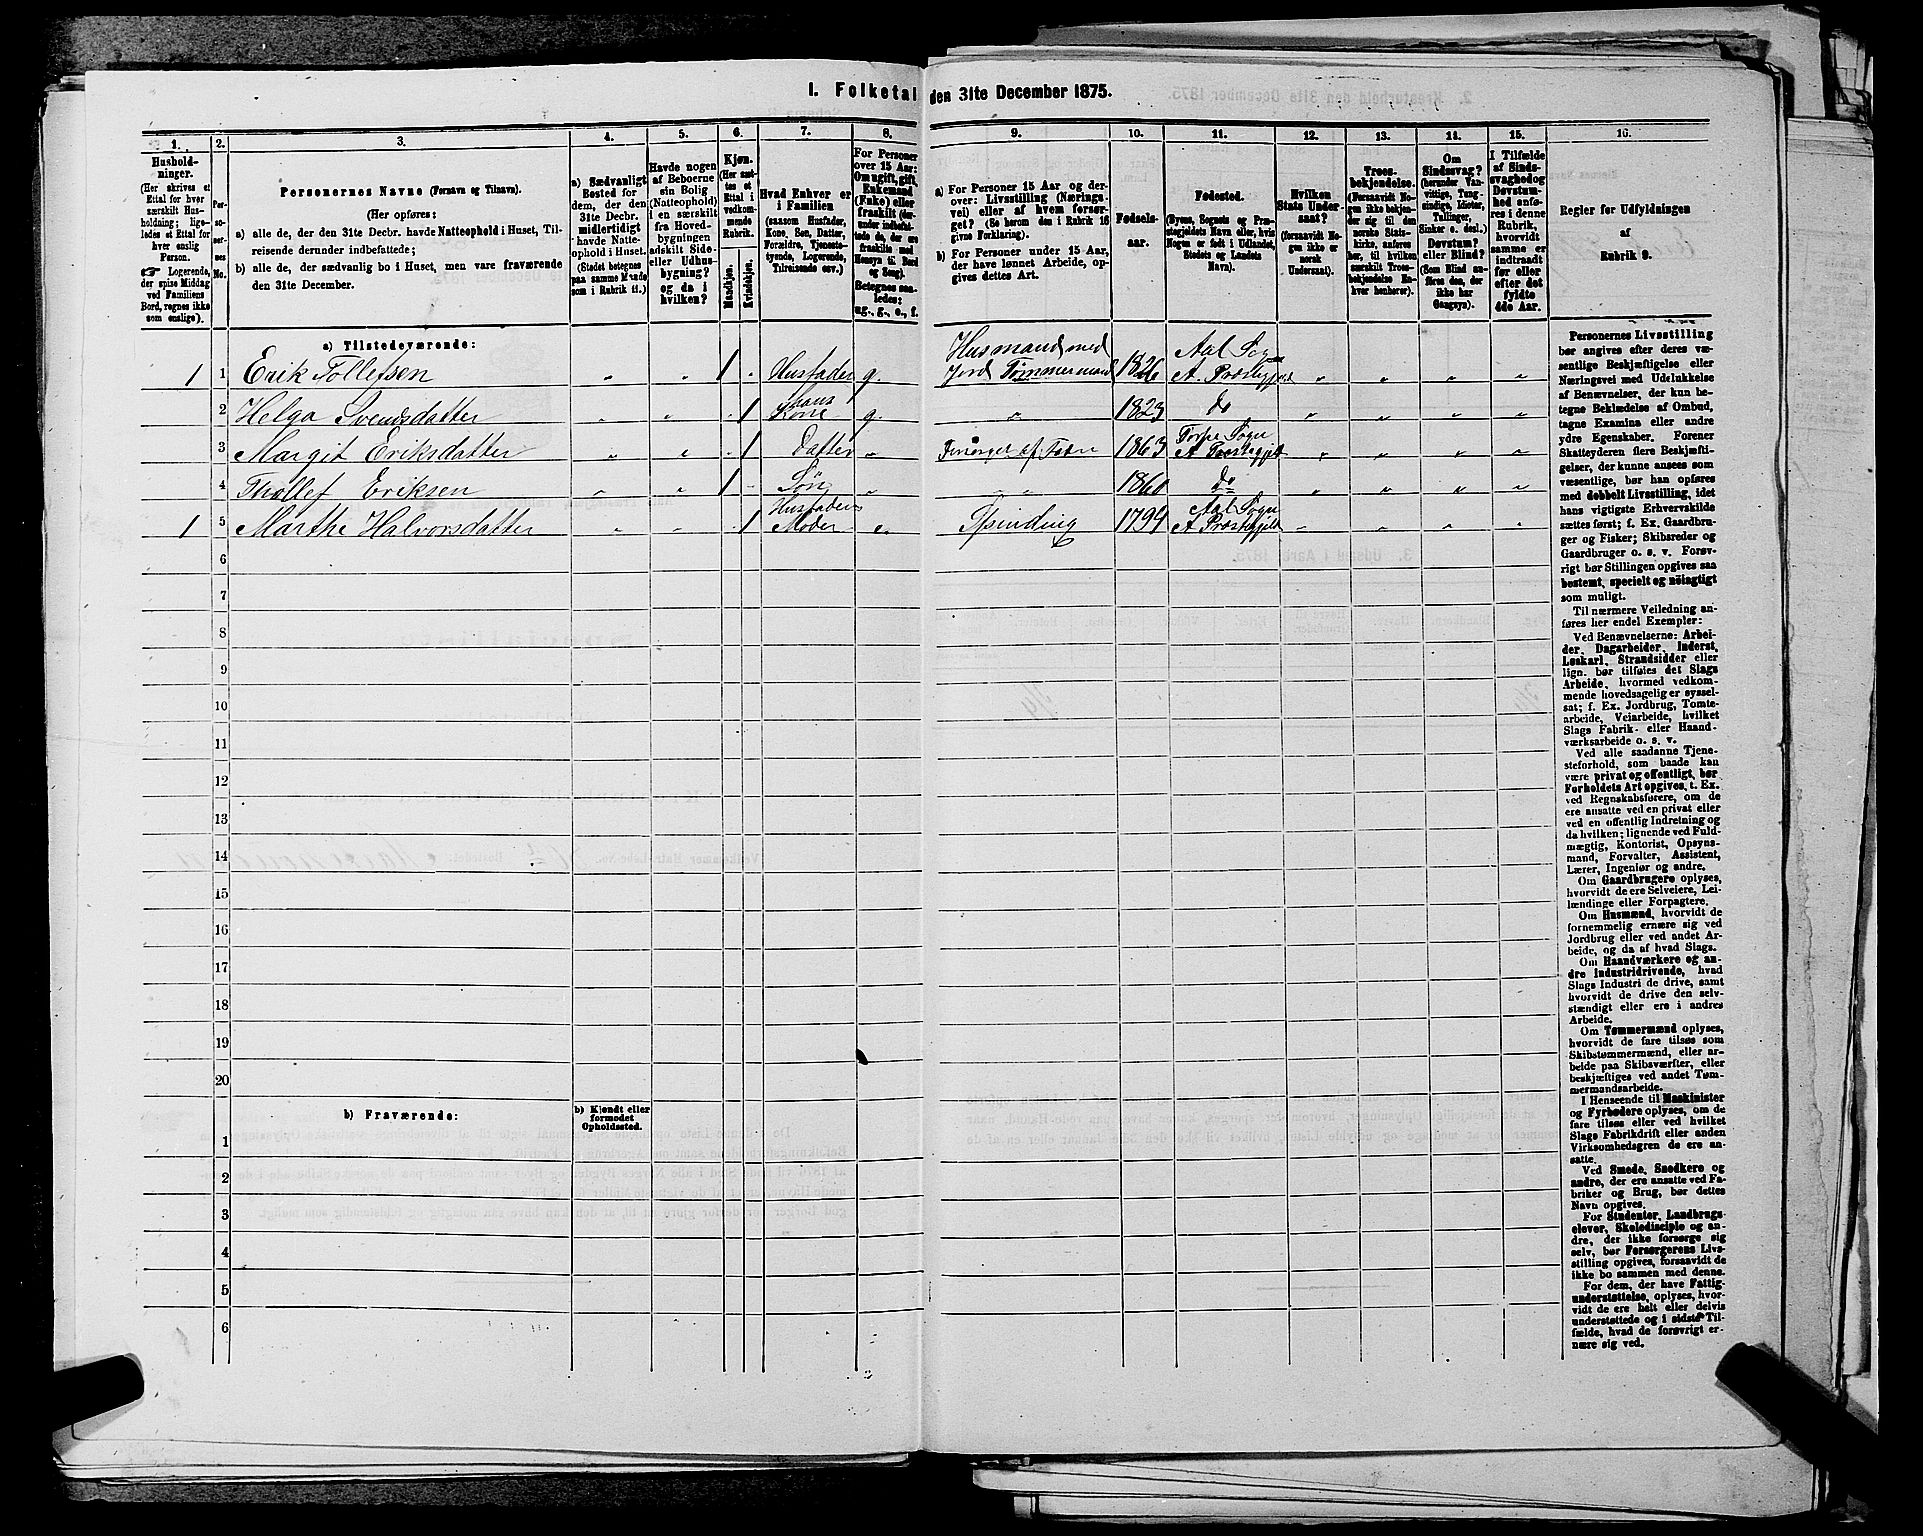 I. Folketal den 31te December 1875.
1.
Hushold-
ninger.
(Her skrives et
Ettal for hver
særskilt Hus-
holdning; lige-
ledes et Ettal for
hver enslig
Person.
Logerende,
der spise Middag
ved Familiens
Bord, regnes ikke
som enslige).
2.
Per-
so-
ner-
nes
No.
3.
Personernes Navne (Fornavn og Tilnavn).
(Her opføres:
a) alle de, der den 31te Decbr. havde Natteophold i Huset, Til-
reisende derunder indbefattede;
b) alle de, der sædvanlig bo i Huset, men vare fraværende
den 31te December.
4.
a) Sædvanligt
Bosted for
dem, der den
31te Decbr.
midlertidigt
havde Natte-
ophold i Huset.
(Stedet betegnes
paa samme Maade
som i Rubrik 11.)
5.
Havde nogen
af Beboerne
sin Bolig
(Natteophold)
i en særskilt
fra Hoved-
bygningen
adskilt Side-
eller Udhus-
bygning?
og da i
hvilken?
6.
Kjøn.
(Her sæt-
tes et
Ettal i
vedkom-
mende
Rubrik.
Mandkjøn.
Kvindekjøn.
7.
Hvad Enhver er
i Familien
(saasom Husfader,
Kone, Søn, Datter,
Forældre, Tjeneste-
tyende, Logerende,
Tilreisende osv.)
8.
For Personer
over 15 Aar:
Om ugift, gift,
Enkemand
(Enke) eller
fraskilt (der-
under indbefat-
tede de, der ere
fraskilte med
Hensyn til Bord
og Seng).
Betegnes saa-
ledes:
ug., g., e., f.
9.
a) For Personer 15 Aar og der-
over: Livsstilling (Nærings-
vei) eller af hvem forsør-
get? (Se herom den i Rubrik 16
givne Forklaring).
b) For Personer under 15 Aar,
der have lønnet Arbeide, op-
gives dettes Art.
10.
Fødsels-
aar.
11.
Fødested.
(Byens, Sognets og Præ-
stegjeldets Navn eller, hvis
Nogen er født i Udlandet,
Stedets og Landets
Navn).
12.
Hvilken
Stats Under-
saat?
(forsaavidt No-
gen ikke er
norsk
Undersaat).
13.
Troes-
bekjendelse.
(Forsaavidt No-
gen ikke bekjen-
der sig til den
norske Stats-
kirke, anføres
her, til hvilken
særskilt Troes-
bekjendelse En-
hver henhører).
14.
Om
Sindssvag?
(herunder Van-
vittige, Tung-
sindige, Idioter,
Tullinger,
Sinker o. desl.)
Døvstum?
eller Blind?
(Som Blind an-
føres den, der
ikke har
Gangsyn).
15.
I Tilfælde
af Sinds-
svaghed og
Døvstum-
hed anfø-
res i denne
Rubrik,
hvorvidt
samme er
indtraadt
før eller
efter det
fyldte
4de Aar.
16.
Regler for Udfyldningen
af
Rubrik 9.
a) Tilstedeværende:
1 1 Erik Tollefsen " " 1 . Husfader g. Husmand med Jord Tømmermand 1826 Aal Sogn A. Præstegjeld " " " "
2 Helga Svendsdatter " " . 1 hans Kone g. " 1823 do " " " "
3 Margit Eriksdatter " " 1 Datter " Forsørget af Fader 1863 Torpe Sogn A Præstegjeld " " " "
4 Thollef Eriksen " " 1 - Søn " " " 1860 do " " " "
1 5 Marthe Halvorsdatter " " . 1 Husfaders Moder e. Spinding 1794 Aal Sogn A Præstegjeld " " " "
6
7
8
9
10
11
12
13
14
15
16
17
18
19
20
b) Fraværende:
b) Kjendt eller
formodet
Opholdssted.
1
2
3
4
5
6
Personernes Livsstilling
bør angives efter deres væ-
sentlige Beskjæftigelse eller
Næringsvei med Udelukkelse
af Benævnelser, der kun be-
tegne Beklædelse af Ombud,
tagne Examina eller andre
ydre Egenskaber. Forener
Skatteyderen flere Beskjæfti-
gelser, der kunne ansees som
væsentlige, bør han opføres
med dobbelt Livsstilling, idet
hans vigtigste Erhvervskilde
sættes først; f. Ex. Gaardbru-
ger og Fisker; Skibsreder og
Gaardbruger o. s. v. Forøv-
rigt bør Stillingen opgives saa
bestemt, specielt og nöiagtigt
som muligt.
Til nærmere Veiledning an-
føres her endel Exempler:
Ved Benævnelserne: Arbei-
der, Dagarbeider, Inderst,
Løskarl, Strandsidder eller
lign. bør tilføies det Slags
Arbeide, hvormed vedkom-
mende hovedsagelig er syssel-
sat; f. Ex. Jordbrug, Tomte-
arbeide, Veiarbeide, hvilket
Slags Fabrik- eller Haand-
værksarbeide o. s. v.
Ved alle saadanne Tjene-
steforhold, som baade kan
være privat og offentligt, bør
Forholdets Art opgives, t. Ex.
ved Regnskabsførere, om de
ere ansatte ved en privat eller
ved en offentlig Indretning og
da hvilken; lignende ved Fuld-
mægtig, Kontorist, Opsyns-
mand, Forvalter, Assistent,
Lærer, Ingeniør og andre.
Om Gaardbrugere oplyses,
hvorvidt de ere Selveiere, Lei-
lændinge eller Forpagtere.
Om Husmænd, hvorvidt de
fornemmelig ernære sig ved
Jordbrug eller ved andet Ar-
beide, og da af hvad Slags.
Om Haandværkere og an-
dre Industridrivende, hvad
Slags Industri de drive, samt
hvorvidt de drive den selv-
stændigt eller ere i andres
Arbeide.
Om Tømmermænd oplyses,
hvorvidt de fare tilsøs som
Skibstømmermænd, eller ar-
beide paa Skibsværfter, eller
beskjæftiges ved andet Tøm-
mermandsarbeide.
I Henseende til Maskinister
og Fyrbødere oplyses, om de
fare tilsøs eller ved hvilket
Slags Fabrikdrift eller anden
Virksomhedsgren de ere an-
satte.
Ved Smede, Snedkere og
andre, der ere ansatte ved Fa-
briker og Brug, bør dettes
Navn opgives.
For Studenter, Landbrugs-
elever, Skoledisciple og an-
dre, der ikke forsørge sig
selv, bør Forsørgerens Livs-
stilling opgives, forsaavidt de
ikke bo sammen med denne.
For dem, der have Fattig-
understøttelse, oplyses, hvor-
vidt de ere helt eller delvis
understøttede og i sidste Til-
fælde, hvad de forøvrigt er-
nære sig ved.